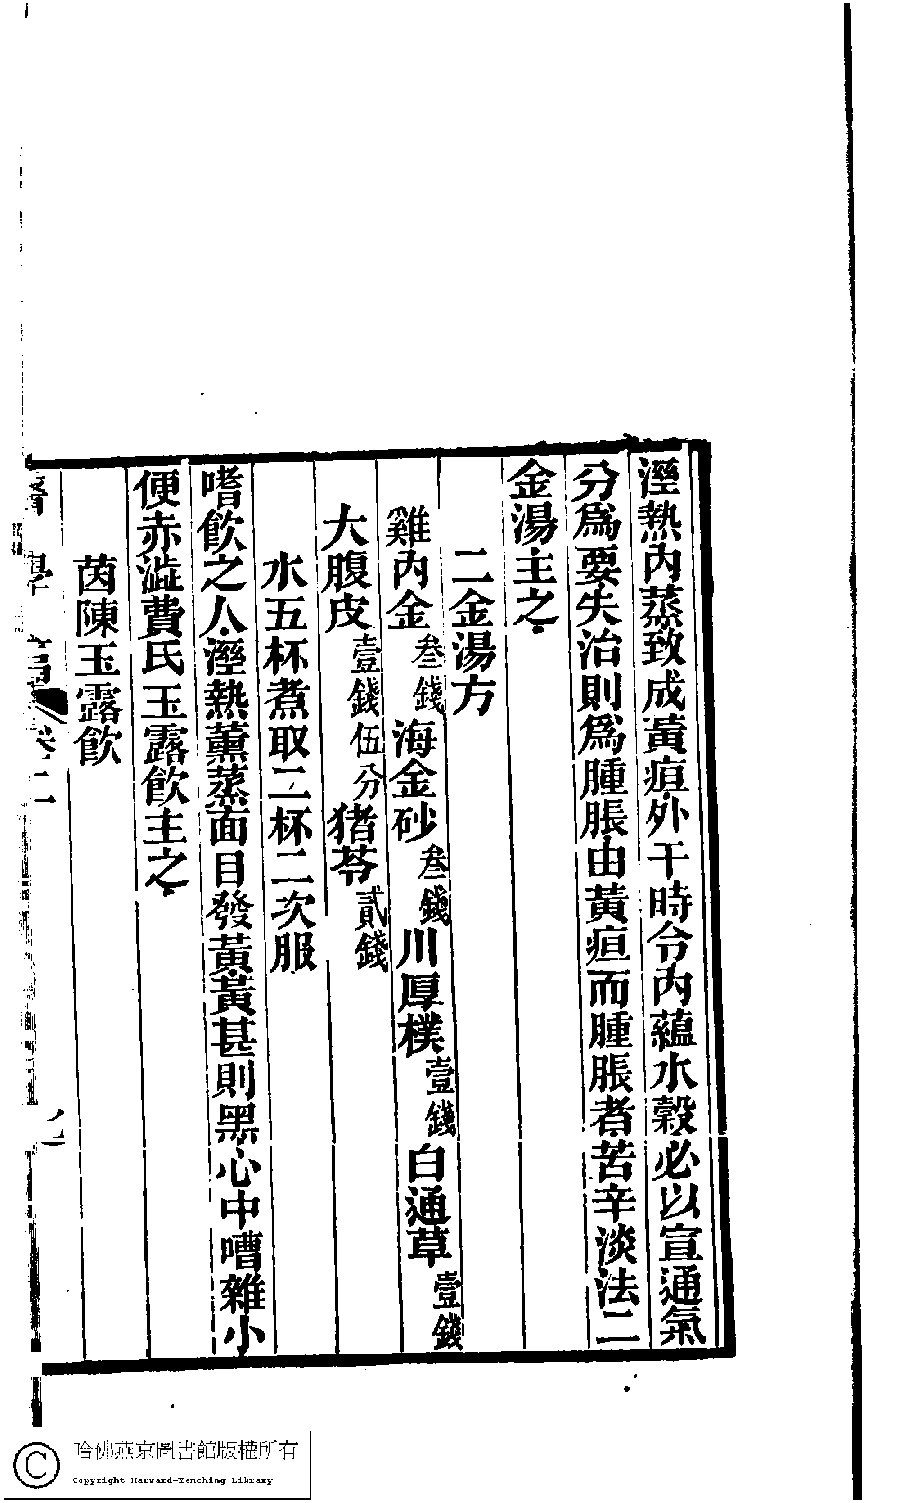 溼熱內蒸致成黃疸外干時令內蘊水穀必以宣通氣
分爲要失治則爲腫脹由黃疸而腫脹者苦辛淡法二
金湯主之
二金湯方
雞內金叁錢海金砂叁錢川厚樸壹錢白通草壹錢
大腹皮壹錢伍分猪苓貳錢
水五杯煮取二杯二次服
嗜飲之人溼熱薰蒸面目發黃黃甚則黑心中嘈雜小
便赤澁費氏玉露飲主之
茵陳玉露飲
卷二
哈佛燕京圖書館版權所有
Copyright Harvard-Yenching Library